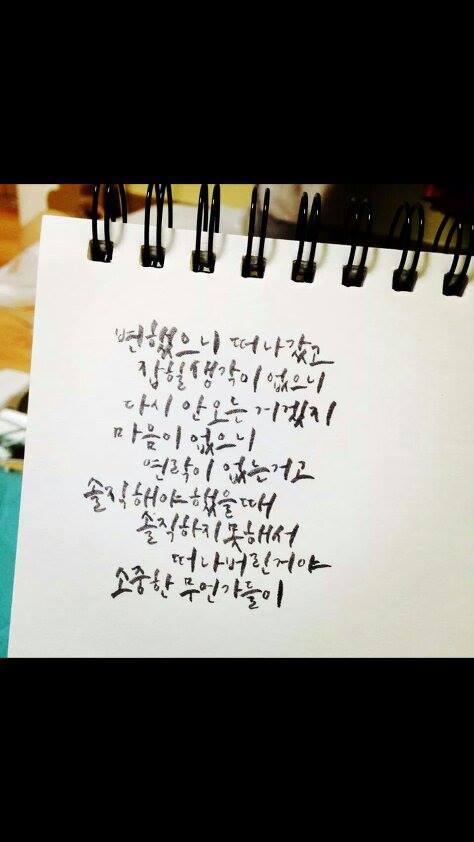 변했으니 떠나갔고
잡힐 생각이 없으니
다시 안 오는 거겠지
마음이 없으니
연락이 없는거고
솔직해야 했을 때
솔직하지 못해서
떠나버린거야
소중한 무언가들이